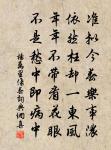 准拟今春乐事浓
依然枉却一东风
年年不带看花眼
不是愁中即病中
杨万里伤春词典网选